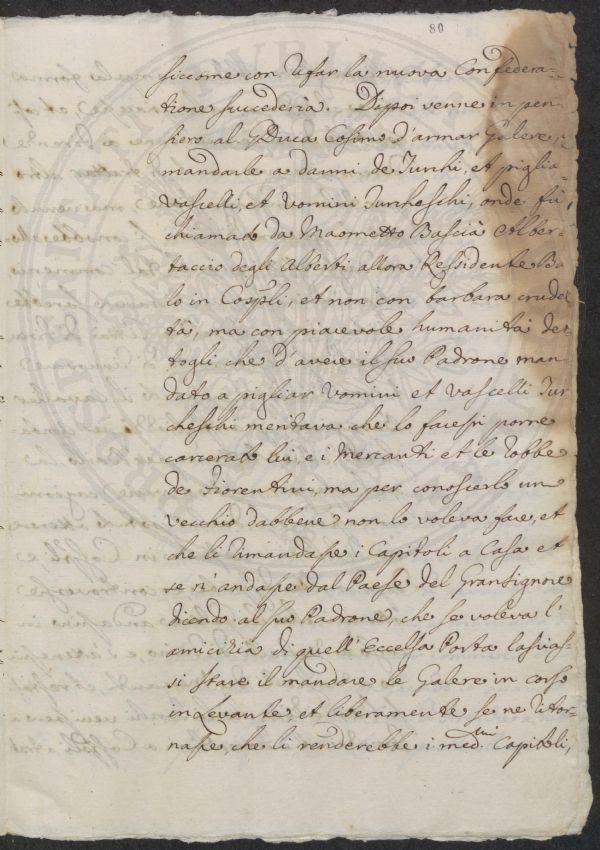 80
siccome con rifar la nuova Confedera=
tione succederia. Dipoi venne in pen=
siero al G Duca Cosimo d'armar Galere, e
mandarle a danni de Turchi, et piglia=
vascelli, et uomini Turcheschi, onde fù
chiamato da Maometto Bascià Alber=
taccio degli Alberti allora Ressidente Ba
lo in Cospli, et non con barbara crudel
tà, ma con piacevole humanità det
togli che d'avere il suo Padrone man
dato a pigliar uomini et vascelli Tur
cheschi meritava che lo facessi porre
carcerato lui, e i Mercanti et le robbe
de Fiorentini, ma per conoscerlo un
vecchio dabbene non lo voleva fare, et
che li rimandasse i Capitoli a Casa et
se n'andasse dal Paese del Gransignore
dicendo al suo Padrone, che se voleva l'
amicizia di quell'Eccelsa Porta lascias=
si stare il mandare le Galere in corso
in Levante, et liberamente se ne ritor=
nasse, che li renderebbe i med.mi Capitoli,